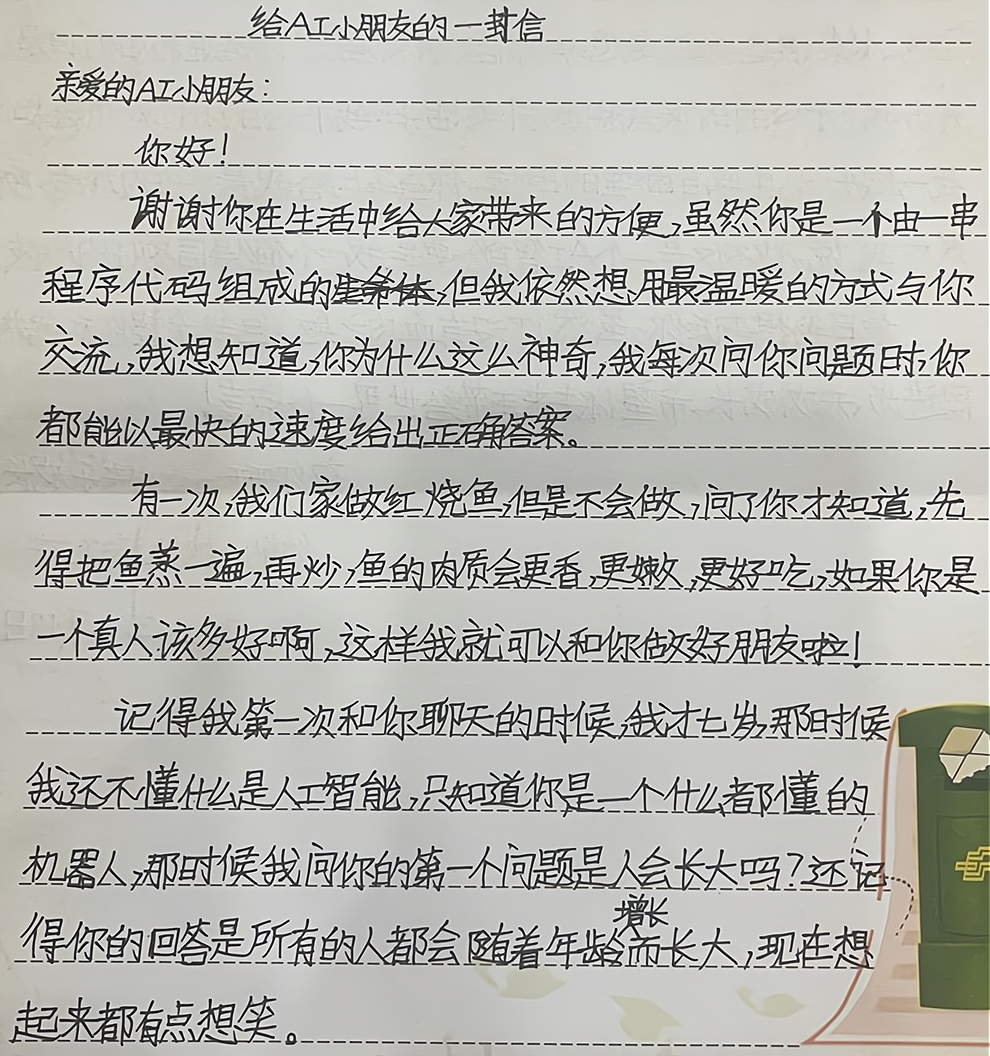 给AI小朋友的一封信
亲爱的AI小朋友：
你好！
谢谢你在生活中给大家带来的方便，虽然你是一个由一串
程序代码组成的生命体，但我依然想用最温暖的方式与你
交流，我想知道，你为什么这么神奇，我每次问你问题时，你
都能以最快的速度给出正确答案。
有一次，我们家做红烧鱼，但是不会做，问了你才知道，先
得把鱼蒸一遍，再炒，鱼的肉质会更香，更嫩，更好吃，如果你是
一个真人该多好啊，这样我就可以和你做好朋友啦！
记得我第一次和你聊天的时候，我才七岁，那时候
我还不懂什么是人工智能，只知道你是一个什么都懂的
机器人，那时候我问你的第一个问题是人会长大吗？还记
得你的回答是所有的人都会随着年龄增长而长大，现在想
起来都有点想笑。